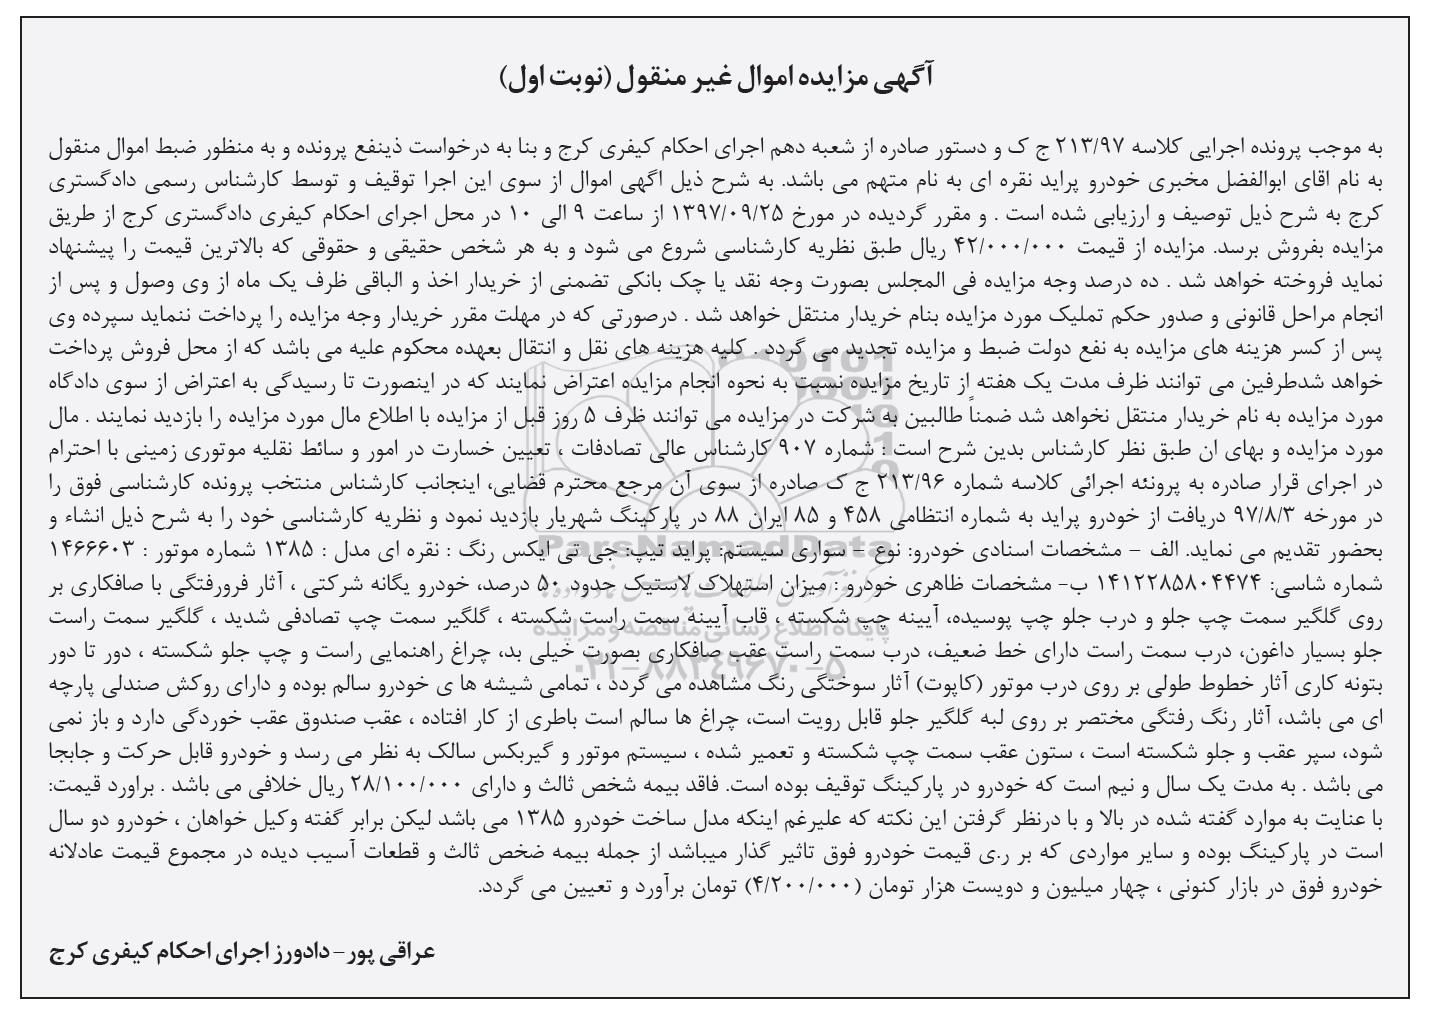 آگهی مزایده اموال غیر منقول (نوبت اول)
به موجب پرونده اجرایی کلاسه ۲۱۳/۹۷ ج ک و دستور صادره از شعبه دهم اجرای احکام کیفری کرج و بنا به درخواست ذینفع پرونده و به منظور ضبط اموال منقول
به نام اقای ابوالفضل مخبری خودرو پراید نقره ای به نام متهم می باشد. به شرح ذیل اگهی اموال از سوی این اجرا توقیف و توسط کارشناس رسمی دادگستری
کرج به شرح ذیل توصیف و ارزیابی شده است . و مقرر گردیده در مورخ ۱۳۹۷/۰۹/۲۵ از ساعت ۹ الی ۱۰ در محل اجرای احکام کیفری دادگستری کرج از طریق
مزایده بفروش برسد. مزایده از قیمت ۴۲/۰۰۰/۰۰۰ ریال طبق نظریه کارشناسی شروع می شود و به هر شخص حقیقی و حقوقی که بالاترین قیمت را پیشنهاد
نماید فروخته خواهد شد . ده درصد وجه مزایده فی المجلس بصورت وجه نقد یا چک بانکی تضمنی از خریدار اخذ و الباقی ظرف یک ماه از وی وصول و پس از
انجام مراحل قانونی و صدور حکم تملیک مورد مزایده بنام خریدار منتقل خواهد شد . درصورتی که در مهلت مقرر خریدار وجه مزایده را پرداخت ننماید سپرده وی
پس از کسر هزینه های مزایده به نفع دولت ضبط و مزایده تجدید می گردد . کلیه هزینه های نقل و انتقال بعهده محکوم علیه می باشد که از محل فروش پرداخت
خواهد شدطرفین می توانند ظرف مدت یک هفته از تاریخ مزایده نسبت به نحوه انجام مزایده اعتراض نمایند که در اینصورت تا رسیدگی به اعتراض از سوی دادگاه
مورد مزایده به نام خریدار منتقل نخواهد شد ضمناً طالبین به شرکت در مزایده می توانند ظرف ۵ روز قبل از مزایده با اطلاع مال مورد مزایده را بازدید نمایند . مال
مورد مزایده و بهای ان طبق نظر کارشناس بدین شرح است : شماره ۹۰۷ کارشناس عالی تصادفات ، تعیین خسارت در امور و سائط نقلیه موتوری زمینی با احترام
در اجرای قرار صادره به پرونئه اجرائی کلاسه شماره ۲۱۳/۹۶ ج ک صادره از سوی آن مرجع محترم قضایی، اینجانب کارشناس منتخب پرونده کارشناسی فوق را
در مورخه ۹۷/۸/۳ دریافت از خودرو پراید به شماره انتظامی ۴۵۸ و ۸۵ ایران ۸۸ در پارکینگ شهریار بازدید نمود و نظریه کارشناسی خود را به شرح ذیل انشاء و
بحضور تقدیم می نماید. الف – مشخصات اسنادی خودرو: نوع – سواری سیستم: پراید تیپ: جی تی ایکس رنگ : نقره ای مدل : ۱۳۸۵ شماره موتور : ۱۴۶۶۶۰۳
شماره شاسی: ۱۴۱۲۲۸۵۸۰۴۴۷۴ ب- مشخصات ظاهری خودرو : میزان استهلاک لاستیک حدود ۵۰ درصد، خودرو یگانه شرکتی ، آثار فرورفتگی با صافکاری بر
روی گلگیر سمت چپ جلو و درب جلو چپ پوسیده، آیینه چپ شکسته ، قاب آیینه سمت راست شکسته ، گلگیر سمت چپ تصادفی شدید ، گلگیر سمت راست
جلو بسیار داغون، درب سمت راست دارای خط ضعیف، درب سمت راست عقب صافکاری بصورت خیلی بد، چراغ راهنمایی راست و چپ جلو شکسته ، دور تا دور
بتونه کاری آثار خطوط طولی بر روی درب موتور (کاپوت) آثار سوختگی رنگ مشاهده می گردد ، تمامی شیشه ها ی خودرو سالم بوده و دارای روکش صندلی پارچه
ای می باشد، آثار رنگ رفتگی مختصر بر روی لبه گلگیر جلو قابل رویت است، چراغ ها سالم است باطری از کار افتاده ، عقب صندوق عقب خوردگی دارد و باز نمی
شود، سپر عقب و جلو شکسته است ، ستون عقب سمت چپ شکسته و تعمیر شده ، سیستم موتور و گیربکس سالک به نظر می رسد و خودرو قابل حرکت و جابجا
می باشد . به مدت یک سال و نیم است که خودرو در پارکینگ توقیف بوده است. فاقد بیمه شخص ثالث و دارای ۲۸/۱۰۰/۰۰۰ ریال خلافی می باشد . براورد قیمت:
با عنایت به موارد گفته شده در بالا و با درنظر گرفتن این نکته که علیرغم اینکه مدل ساخت خودرو ۱۳۸۵ می باشد لیکن برابر گفته وکیل خواهان ، خودرو دو سال
است در پارکینگ بوده و سایر مواردی که بر ر.ی قیمت خودرو فوق تاثیر گذار میباشد از جمله بیمه ضخص ثالث و قطعات آسیب دیده در مجموع قیمت عادلانه
خودرو فوق در بازار کنونی ، چهار میلیون و دویست هزار تومان (۴/۲۰۰/۰۰۰) تومان برآورد و تعیین می گردد.
عراقی پور– دادورز اجرای احکام کیفری کرج
ParsNamadData
پایگاه اطلاع رسانی مناقصه و مزایده
۰۲۱-۸۸۳۴۹۶۷۰-۵